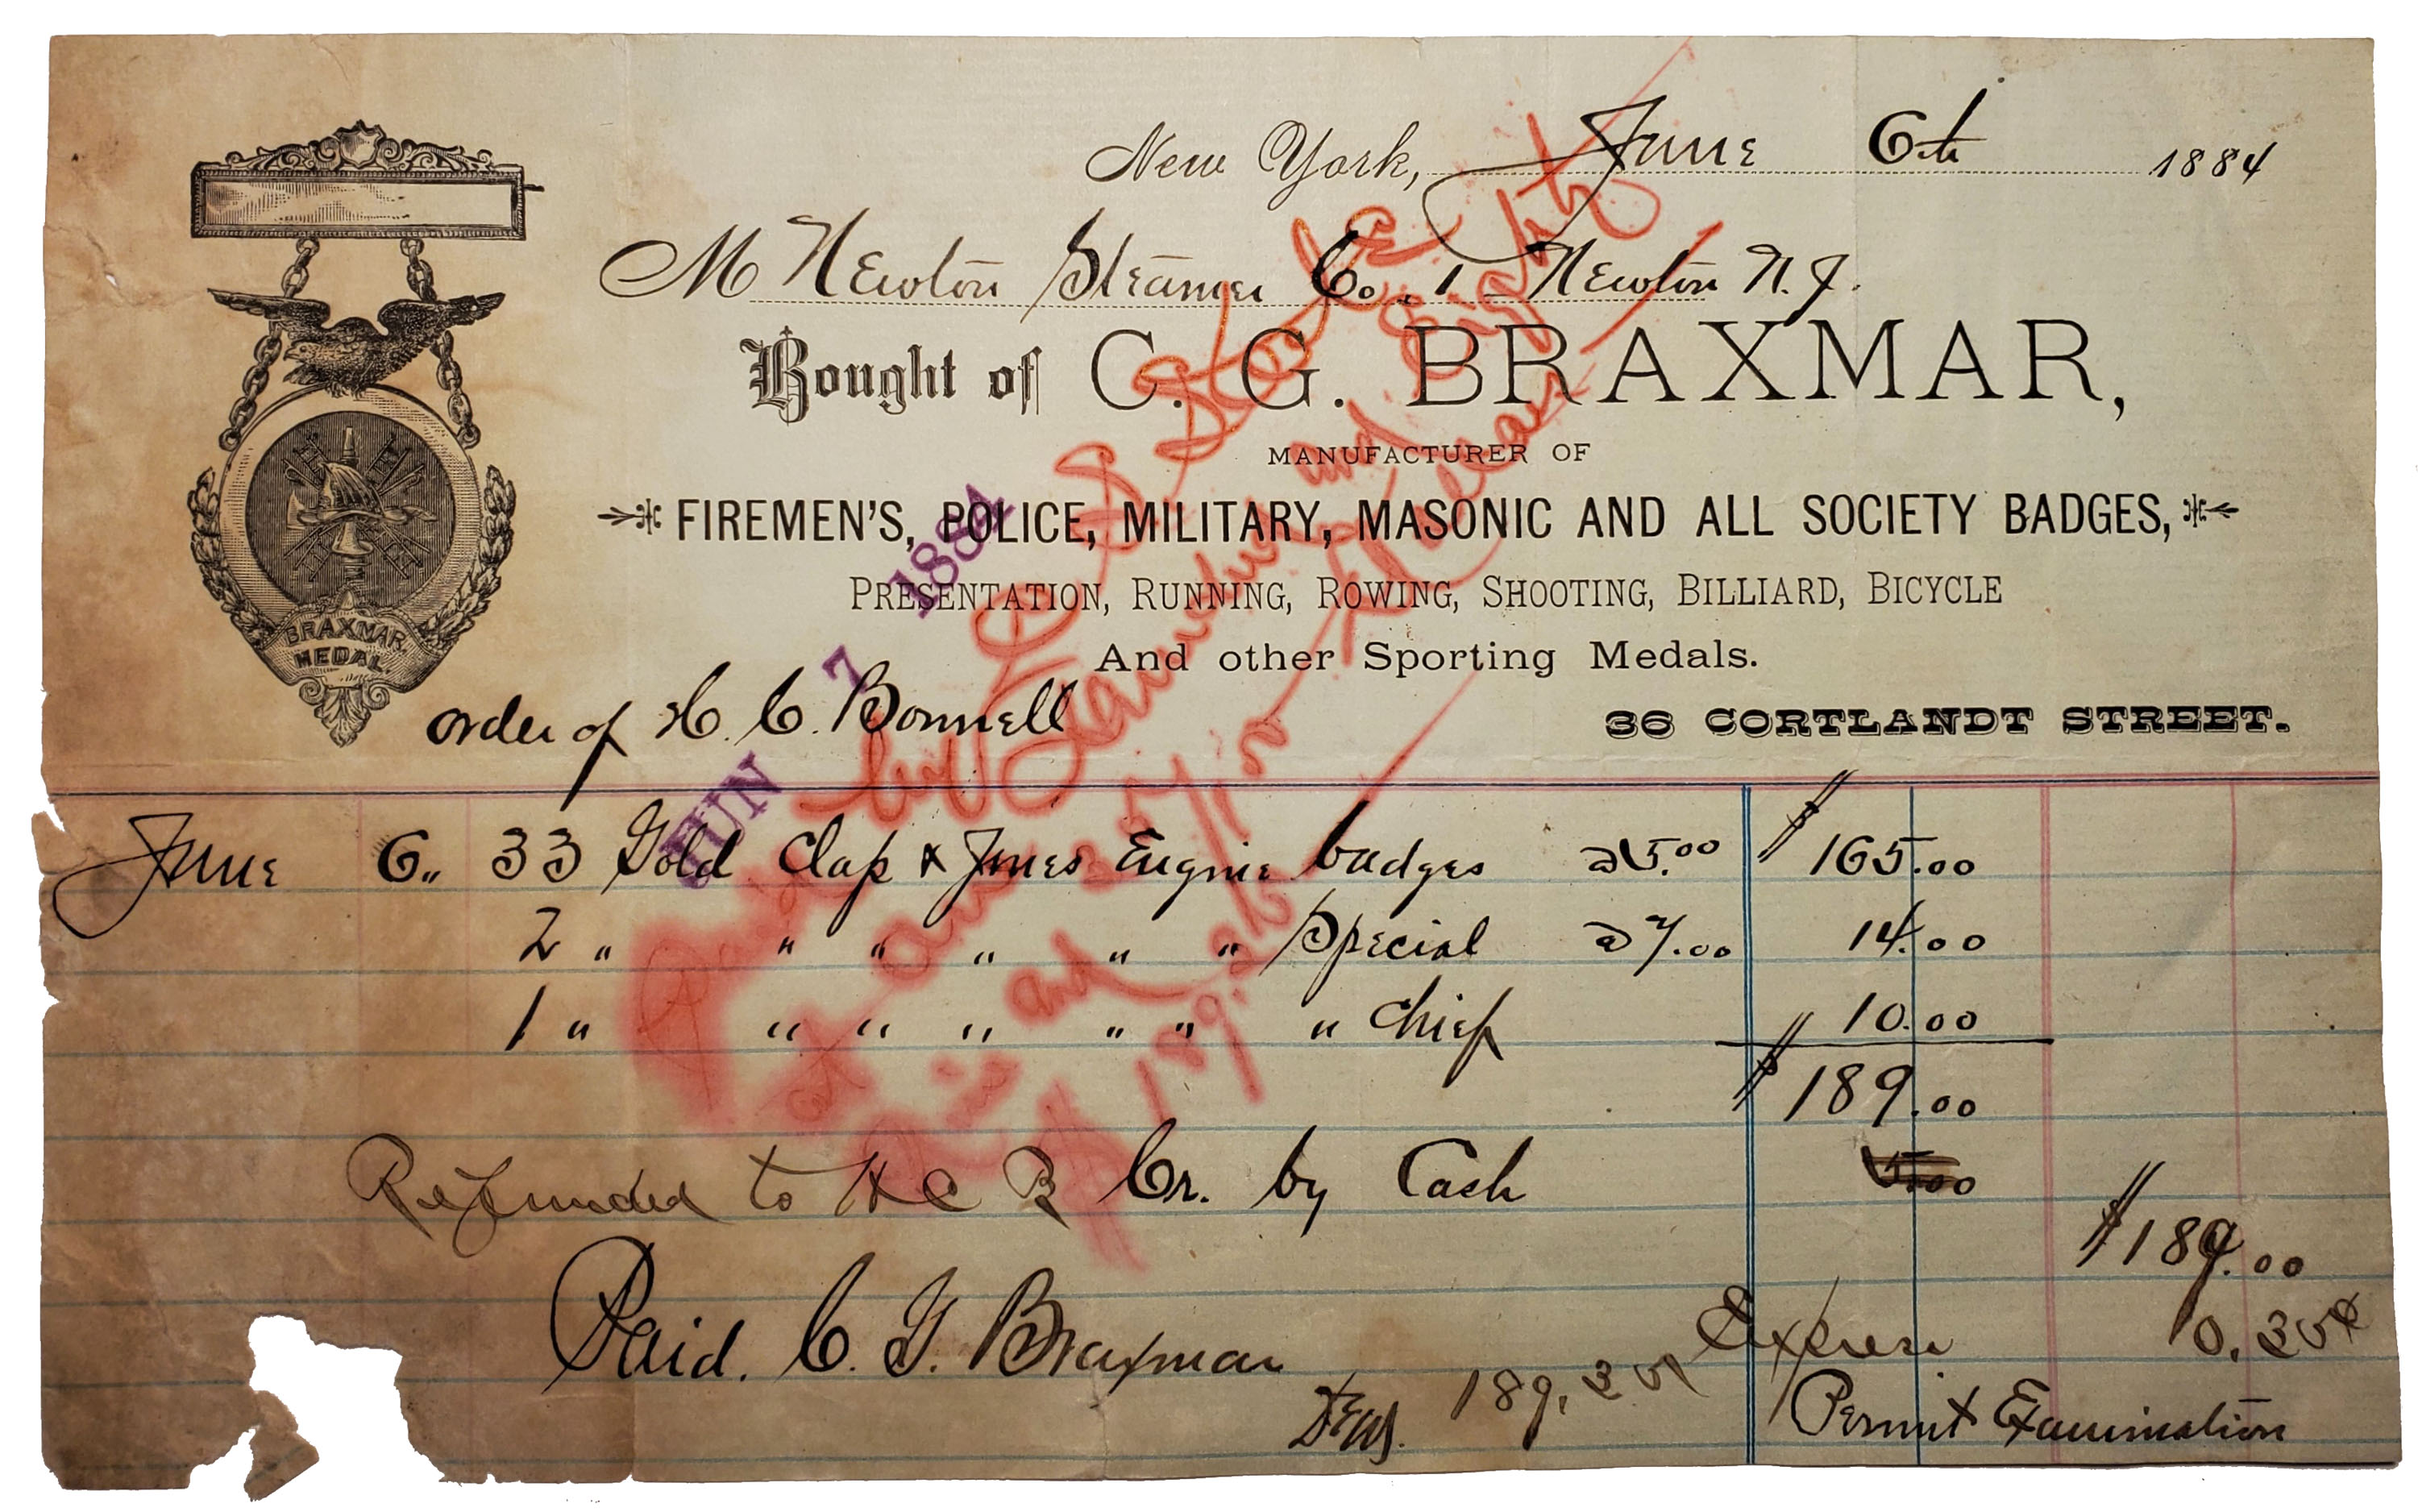 New York, June 6th 1884
M Newton Steamer Co. 1 Newton N.J.
Bought of C. G. BRAXMAR,
MANUFACTURER OF
FIREMEN'S, POLICE, MILITARY, MASONIC AND ALL SOCIETY BADGES,
PRESENTATION, RUNNING, ROWING, SHOOTING, BILLIARD, BICYCLE
And other Sporting Medals.
36 CORTLANDT STREET.
BRAXMAR
MEDAL
order of H. C. Bonnell
JUN 7 1884
June 6.. 33 Gold Clap & Jones Engine badges a 5.00 $165.00
2 " " " " " " Special a 7.00 14.00
1 " " " " " " " Chief 10.00
$189.00
Refunded to H C B Cr. by Cash 5.00
$189.00
Paid. C. G. Braxmar
Express 0.35
189.35
Permit Examination
and Eight
by
and
$189.